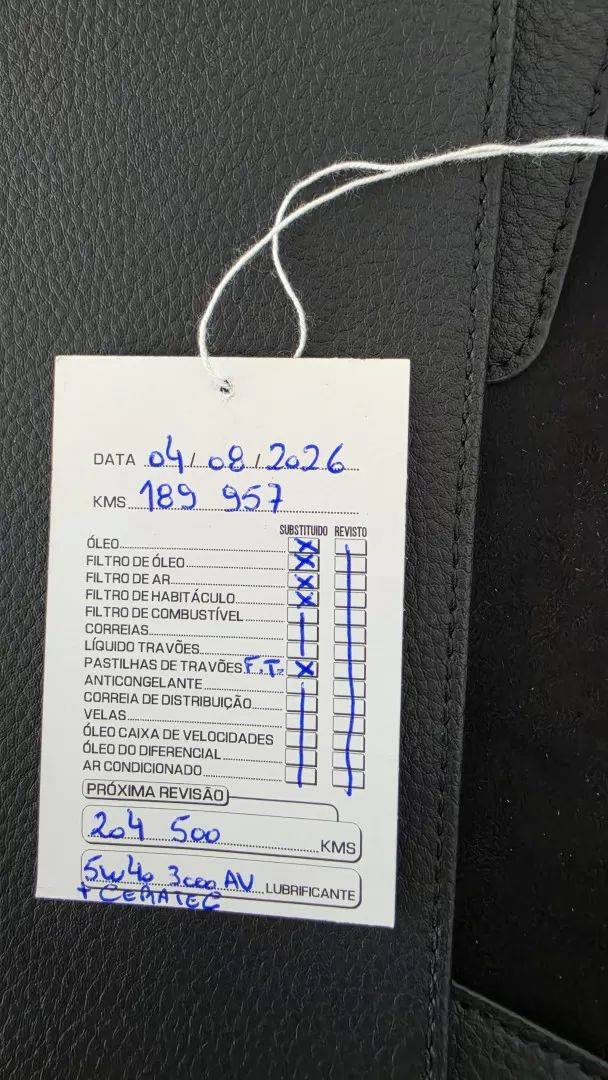 DATA 04/08/2026
KMS 189 957
SUBSTITUIDO REVISTO
ÓLEO X
FILTRO DE ÓLEO X
FILTRO DE AR X
FILTRO DE HABITÁCULO X
FILTRO DE COMBUSTÍVEL
CORREIAS
LÍQUIDO TRAVÕES
PASTILHAS DE TRAVÕES F.T. X
ANTICONGELANTE
CORREIA DE DISTRIBUIÇÃO
VELAS
ÓLEO CAIXA DE VELOCIDADES
ÓLEO DO DIFERENCIAL
AR CONDICIONADO
PRÓXIMA REVISÃO
204 500 KMS
5W40 3000 AV LUBRIFICANTE
+ CERATEC